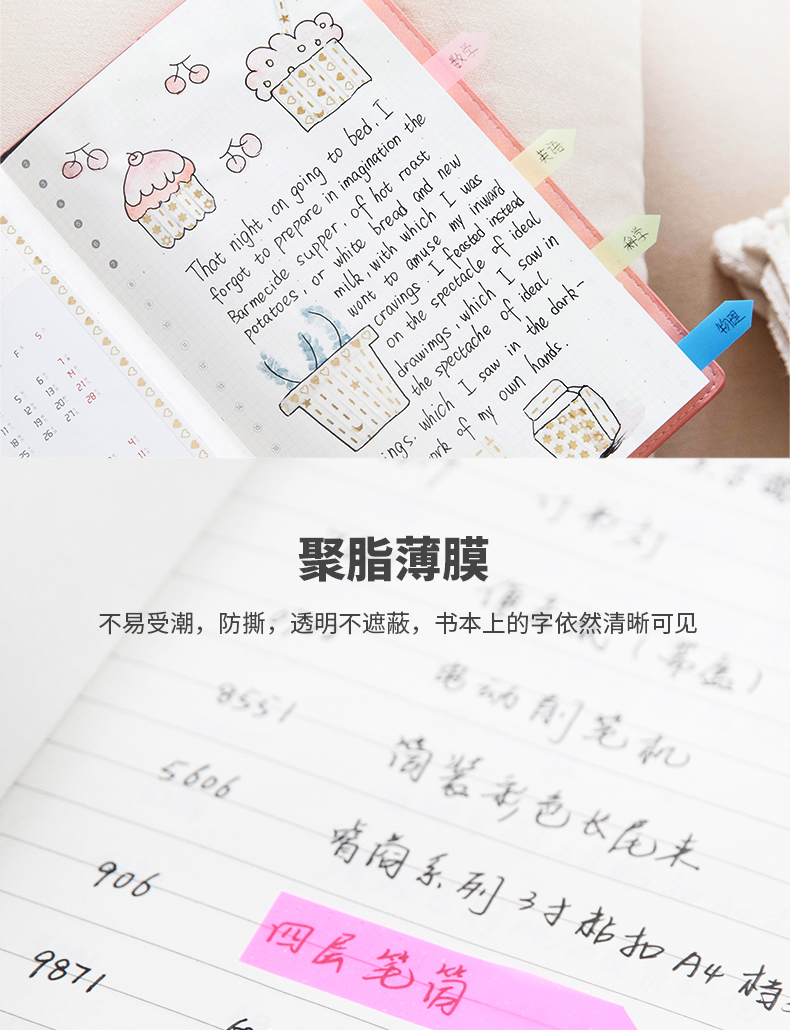 数学
英语
科学
物理
That night, on going to bed, I
forgot to prepare in imagination the
Barmecide supper, of hot roast
potatoes, or white bread and new
milk, with which I was
wont to amuse my inward
cravings. I feasted instead
on the spectacle of ideal
drawings, which I saw in
the spectache of ideal.
ings. which I saw in the dark-
work of my own hands.
聚脂薄膜
不易受潮，防撕，透明不遮蔽，书本上的字依然清晰可见
8551
电动削笔机
5606
筒装彩色长尾夹
906
系列3寸粘扣A4档
9871
四层笔筒